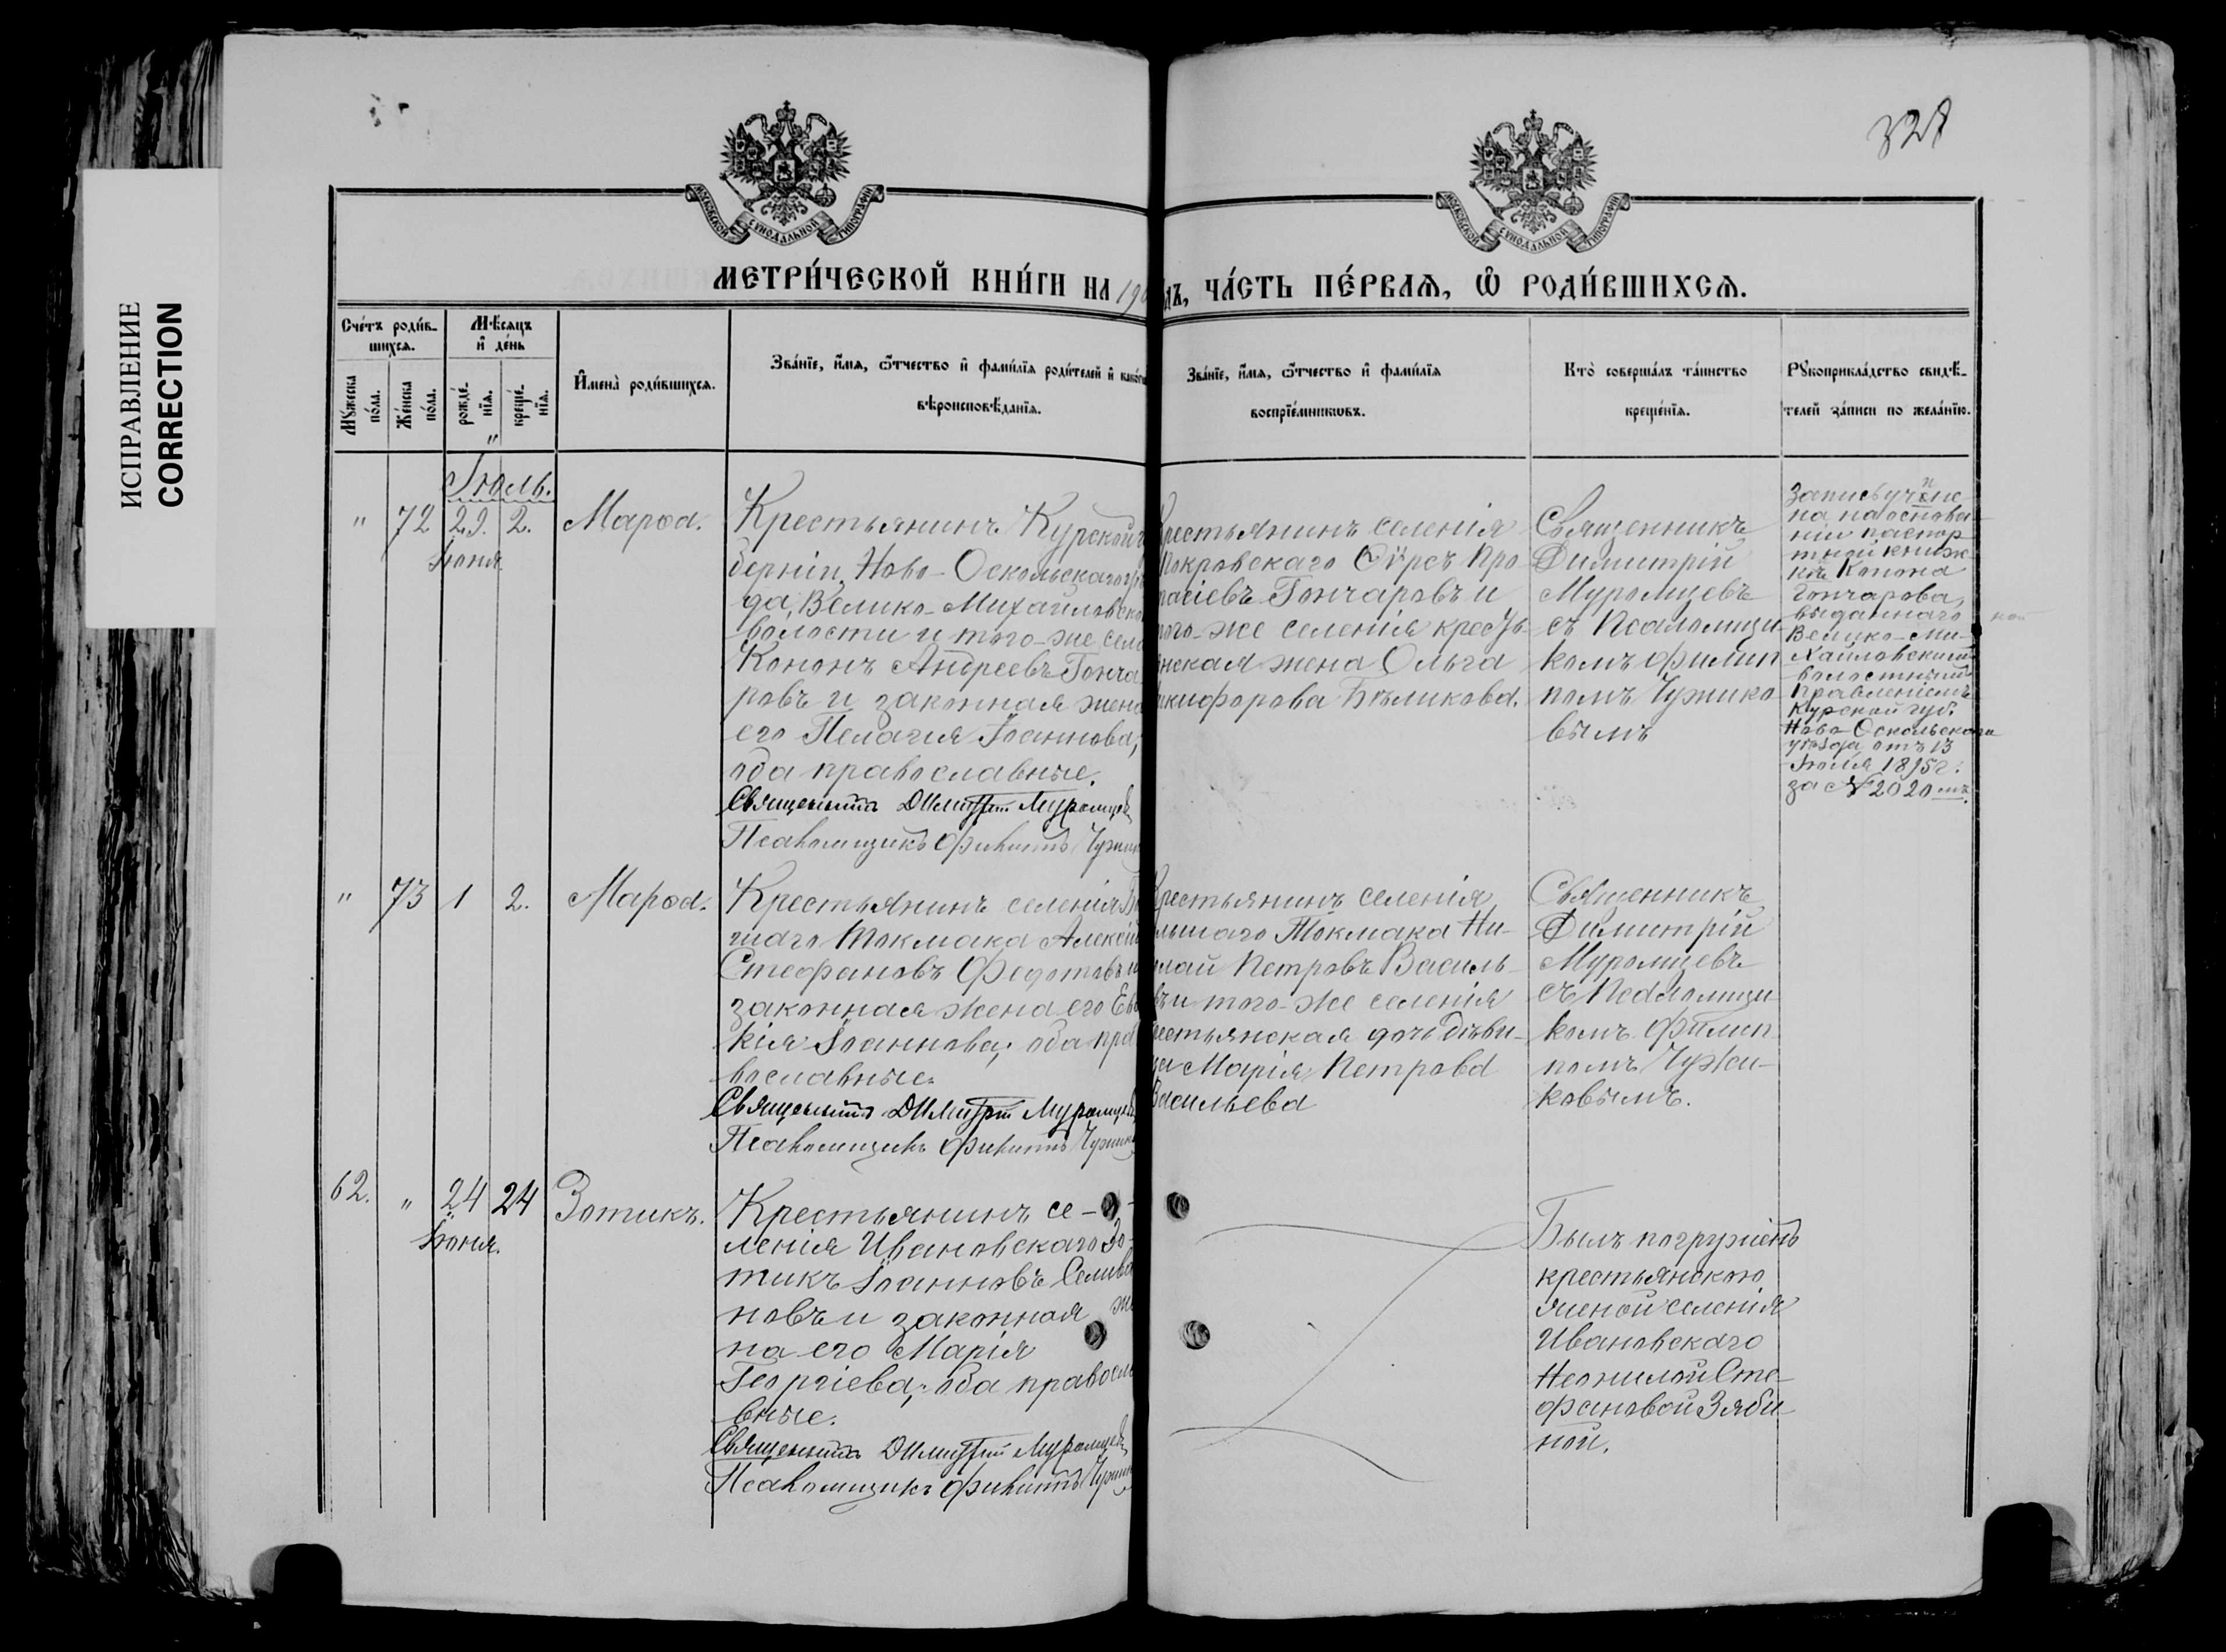 ИСПРАВЛЕНИЕ
CORRECTION
328
МОСКОВСКОЙ СУНОДАЛЬНОЙ ТИПОГРАФІИ
МОСКОВСКОЙ СУНОДАЛЬНОЙ ТИПОГРАФІИ
МЕТРИ́ЧЕСКОЙ КНИ́ГИ НА 19
ЧА́СТЬ ПЕ́РВАѦ, Ѡ҆ РОДИ́ВШИХСѦ.
Сче́тъ роди́в-
шихсѧ.
Мꙋжеска по́ла.
Же́нска по́ла.
Мѣ́сѧцъ и҆ де́нь
рожде́-нїѧ.
креще́-нїѧ.
И҆мена̀ роди́вшихсѧ.
Зва́нїе, и҆́мѧ, ѻ҆́тчество и҆ фами́лїѧ роди́телей и҆ како́гѡ
вѣроисповѣ́данїѧ.
Зва́нїе, и҆́мѧ, ѻ҆́тчество и҆ фами́лїѧ
воспрїе́мникѡвъ.
Кто̀ соверша́лъ та́инство
креще́нїѧ.
Рꙋкоприкла́дство свидѣ́-
телей за́писи по жела́нїю.
Іюль.
" 72 29. 2. Мароа.
Іюня
Крестьянинъ Курской
берніи, Ново-Оскольскаго
да, Велико-Михайловской
волости и того-же села
Кононъ Андреевъ Гонча-
ровъ и законная жена
его Пелагия Іоаннова,
оба православные.
Священникъ Димитрій Муромцевъ
Псаломщикъ Филиппъ Чужик
Крестьянинъ селенія
Покровскаго
Гончаровъ и
того-же селенія кресть-
янская жена Ольга
Никифорова Бѣликова.
Священникъ
Димитрій
Муромцевъ
съ Псаломщи-
комъ Филип-
помъ Чужико-
вымъ
Запись учине-
на на основа-
ніи паспор-
тной книж-
ки Конона
Гончарова,
выданнаго
Велико-Ми-
хайловскимъ
волостнымъ
Правленіемъ
Курской губ.
Ново-Оскольскаго
уѣзда отъ 13
Іюля 1895 г.
за № 2020 мъ.
" 73 1 2. Мароа.
Крестьянинъ селенія Бо
шаго Токмака Алексій
Стефановъ Федотовъ и
законная жена его Евдо
кія Іоаннова, оба пра
вославные.
Священникъ Димитрій Муромцевъ
Псаломщикъ Филиппъ Чужик
Крестьянинъ селенія
льшаго Токмака Ни-
лай Петровъ Василь-
въ и того-же селенія
рестьянская дочь дѣви-
ца Марія Петрова
Васильева
Священникъ
Димитрій
Муромцевъ
съ Псаломщи-
комъ Филип-
помъ Чужи-
ковымъ.
62. " 24 24 Зотикъ.
Іюня.
Крестьянинъ се-
ленія Ивановскаго Зо-
тикъ Іоанновъ Селива
новъ и законная же
на его Марія
Георгіева, оба правосла
вные.
Священникъ Димитрій Муромцевъ
Псаломщикъ Филиппъ Чужик
Былъ погруженъ
крестьянскою
женой селенія
Ивановскаго
Неонилой Сте-
фановой Зяби-
ной.